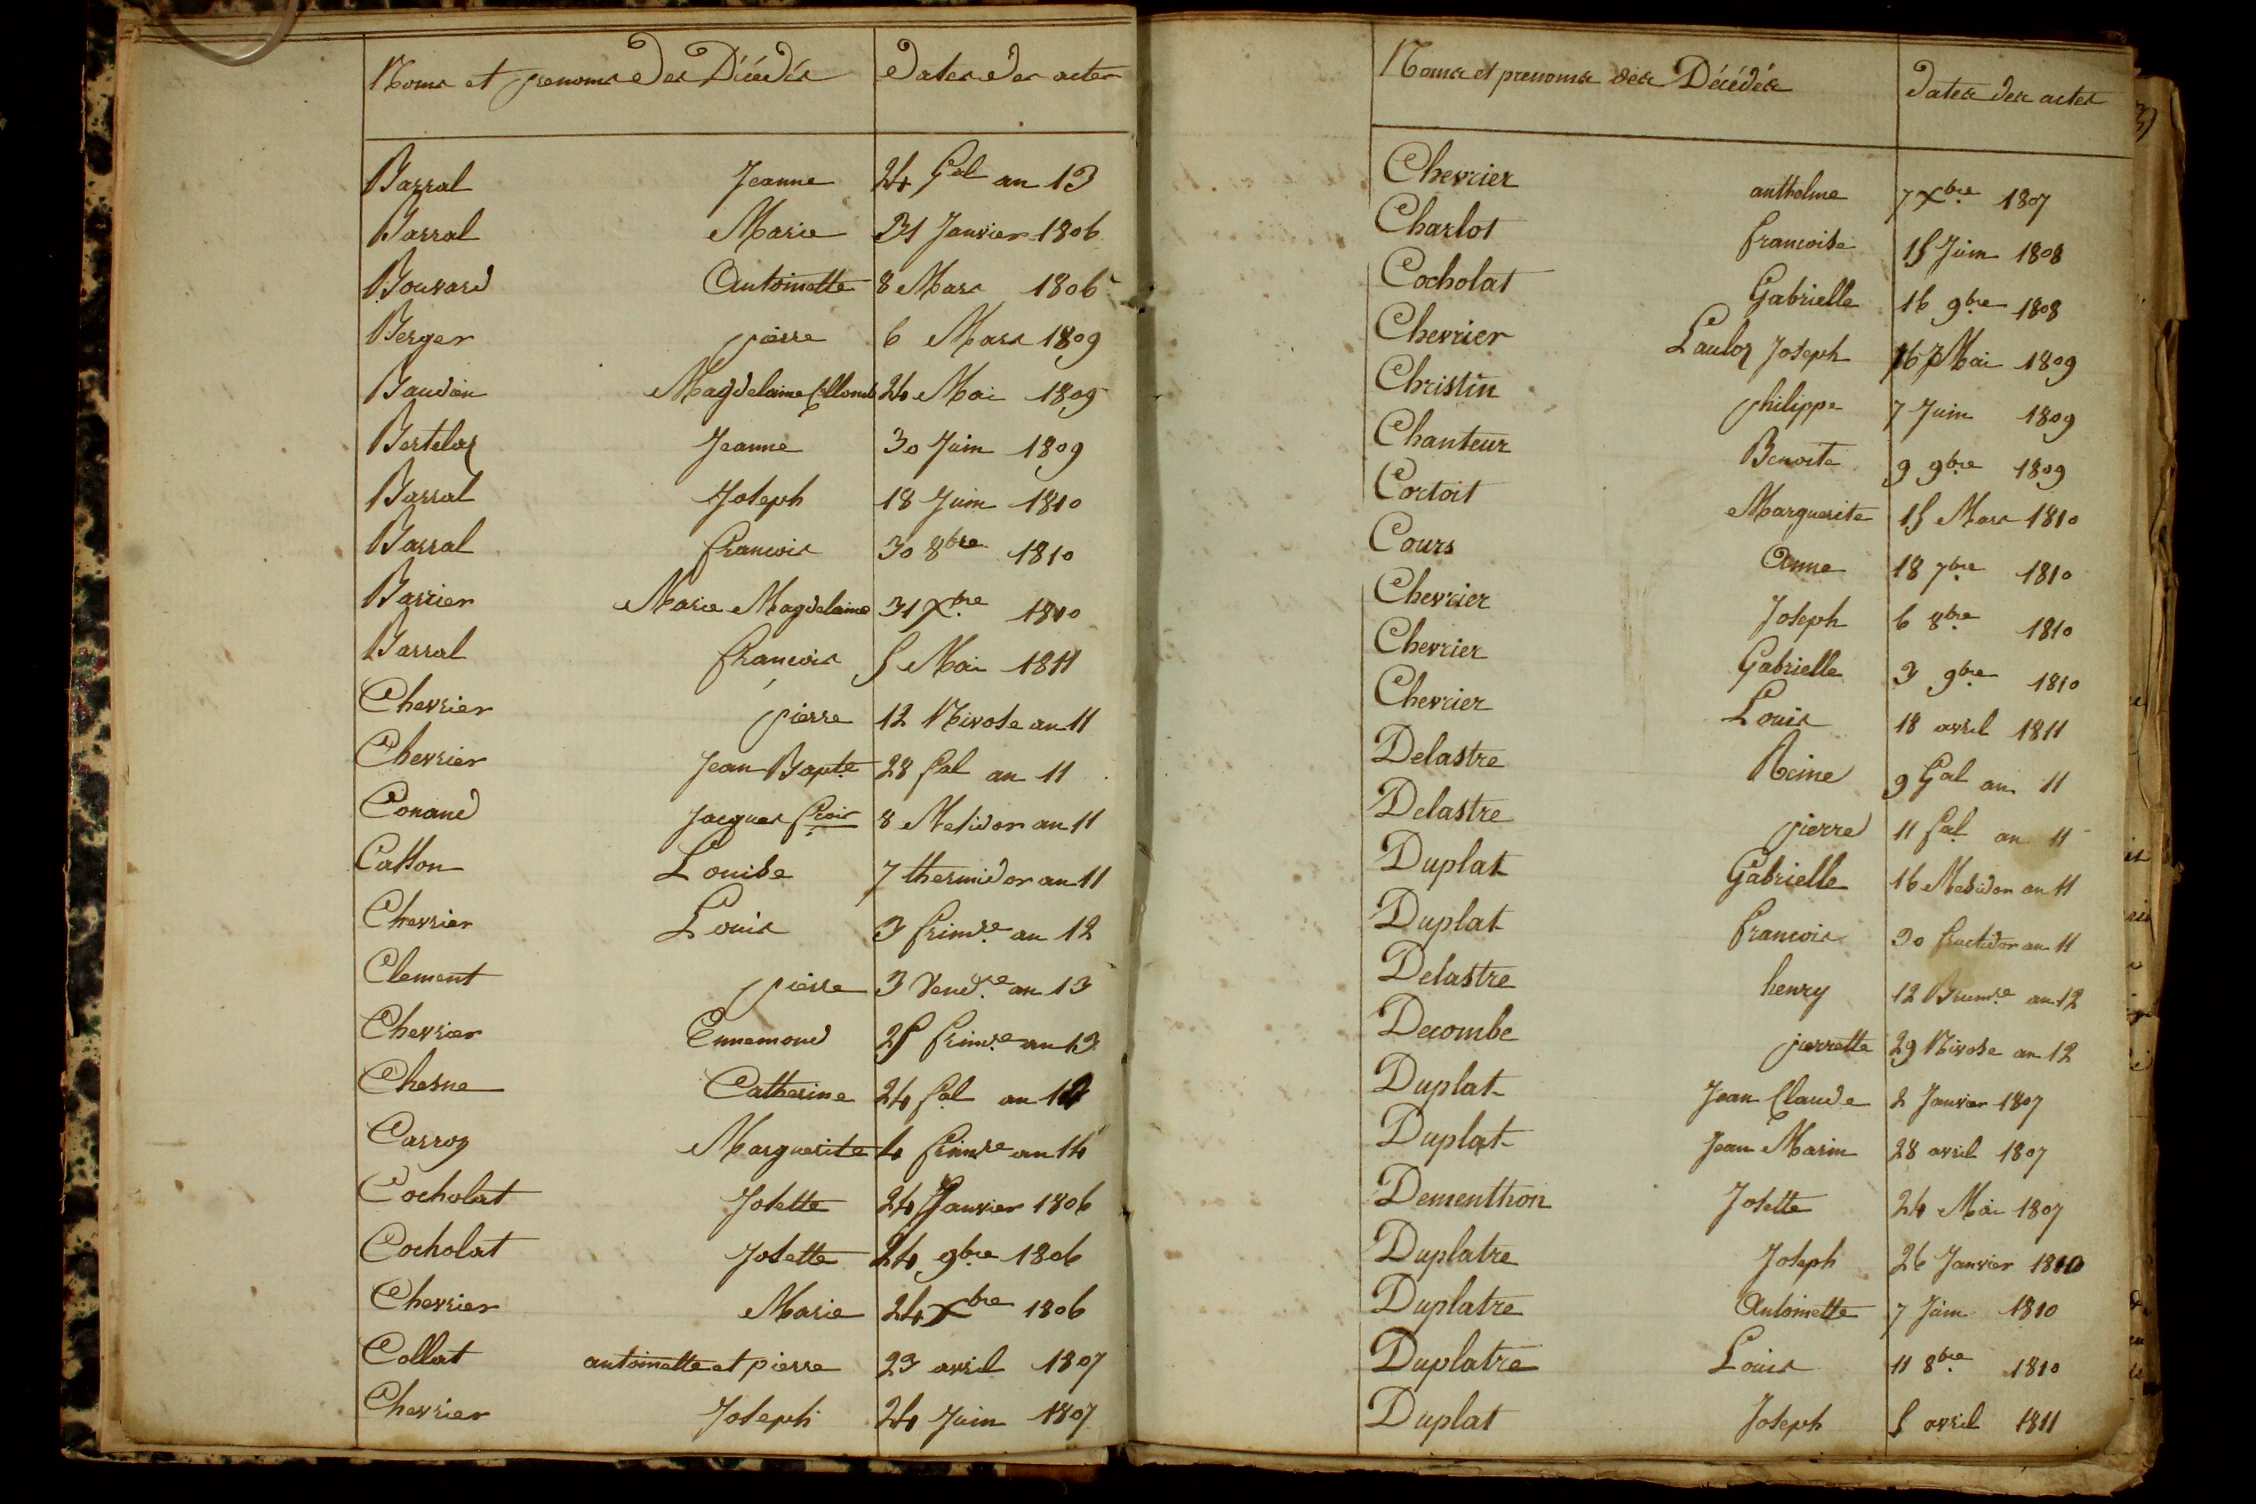 Noms et prenoms des Décédés Dates des actes
Barral Jeanne 24 gal an 13
Barral Marie 21 Janvier 1806
Bouvard Antoinette 8 Mars 1806
Berger pierre 6 Mars 1809
Baudin Magdelaine Collomb 24 Mai 1809
Berteloz Jeanne 30 Juin 1809
Barral Joseph 18 Juin 1810
Barral francois 30 8bre 1810
Barrier Marie Magdelaine 31 Xbre 1810
Barral françois 5 Mai 1811
Chevrier pierre 12 Nivose an 11
Chevrier Jean Bapte 28 fal an 11
Conand Jacques frois 8 Mesidor an 11
Catton Louise 7 thermidor an 11
Chevrier Louis 3 frimre an 12
Clement pierre 3 Vendre an 13
Chevrier Ennemond 25 frimre an 13
Chesne Catherine 24 fal an 12
Carroz Marguerite 4 frimre an 14
Cocholat Josette 24 Janvier 1806
Cocholat Josette 24 9bre 1806
Chevrier Marie 24 Xbre 1806
Collat antoinette et pierre 23 avril 1807
Chevrier Joseph 24 Juin 1807
Noms et prenoms des Décédés Dates des actes
Chevrier anthelme 7 Xbre 1807
Charlot francoise 15 Juin 1808
Cocholat Gabrielle 16 9bre 1808
Chevrier Joseph Mai 1809
Christin philippe 7 Juin 1809
Chanteur Benoite 9 9bre 1809
Cortoit Marguerite 15 Mars 1810
Cours Anne 18 7bre 1810
Chevrier Joseph 6 8bre 1810
Chevrier Gabrielle 3 9bre 1810
Chevrier Louis 18 avril 1811
Delastre Reine 9 gal an 11
Delastre pierre 11 fal an 11
Duplat Gabrielle 16 Mesidor an 11
Duplat francois 30 fructidor an 11
Delastre henry 12 Brumre an 12
Decombe pierrette 29 Nivose an 12
Duplat Jean Claude 2 Janvier 1807
Duplat Jean Marin 28 avril 1807
Dementhon Josette 24 Mai 1807
Duplatre Joseph 26 Janvier 1810
Duplatre Antoinette 7 Juin 1810
Duplatre Louis 11 8bre 1810
Duplat Joseph 5 avril 1811